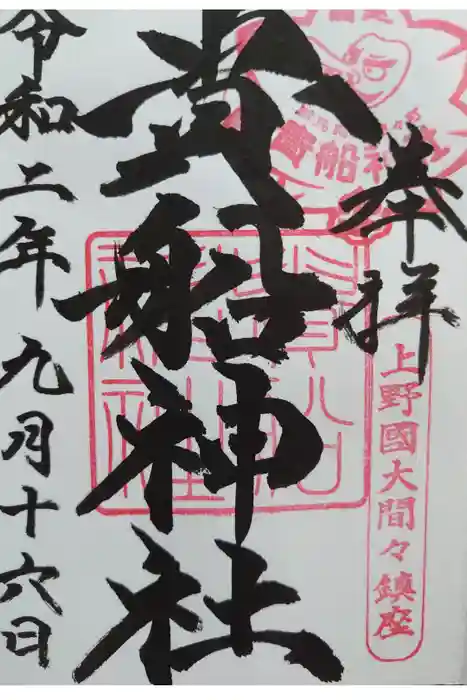 奉拝
上野國大間々鎮座
貴船神社
貴船神
令和二年九月十六日